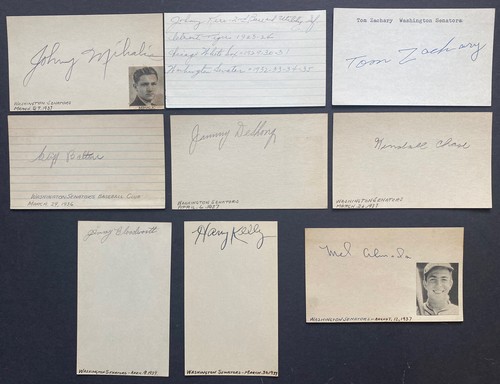 Johny Mihalic
WASHINGTON SENATORS
MARCH 29, 1937
Johnny
Detroit Tigers 1923-26
Chicago White Sox
Washington Senators
Tom Zachary Washington Senators
Tom Zachary
Cliff Bolton
WASHINGTON SENATORS BASEBALL CLUB
MARCH 29, 1936
Jimmy DeShong
WASHINGTON SENATORS
APRIL 2, 1937
Kendall Chase
WASHINGTON SENATORS
MARCH 26, 1937
Jimmy Bloodworth
WASHINGTON SENATORS - APRIL 9, 1937
Harry Kelley
WASHINGTON SENATORS - MARCH 26, 1937
Mel Almada
WASHINGTON SENATORS - AUGUST 11, 1937